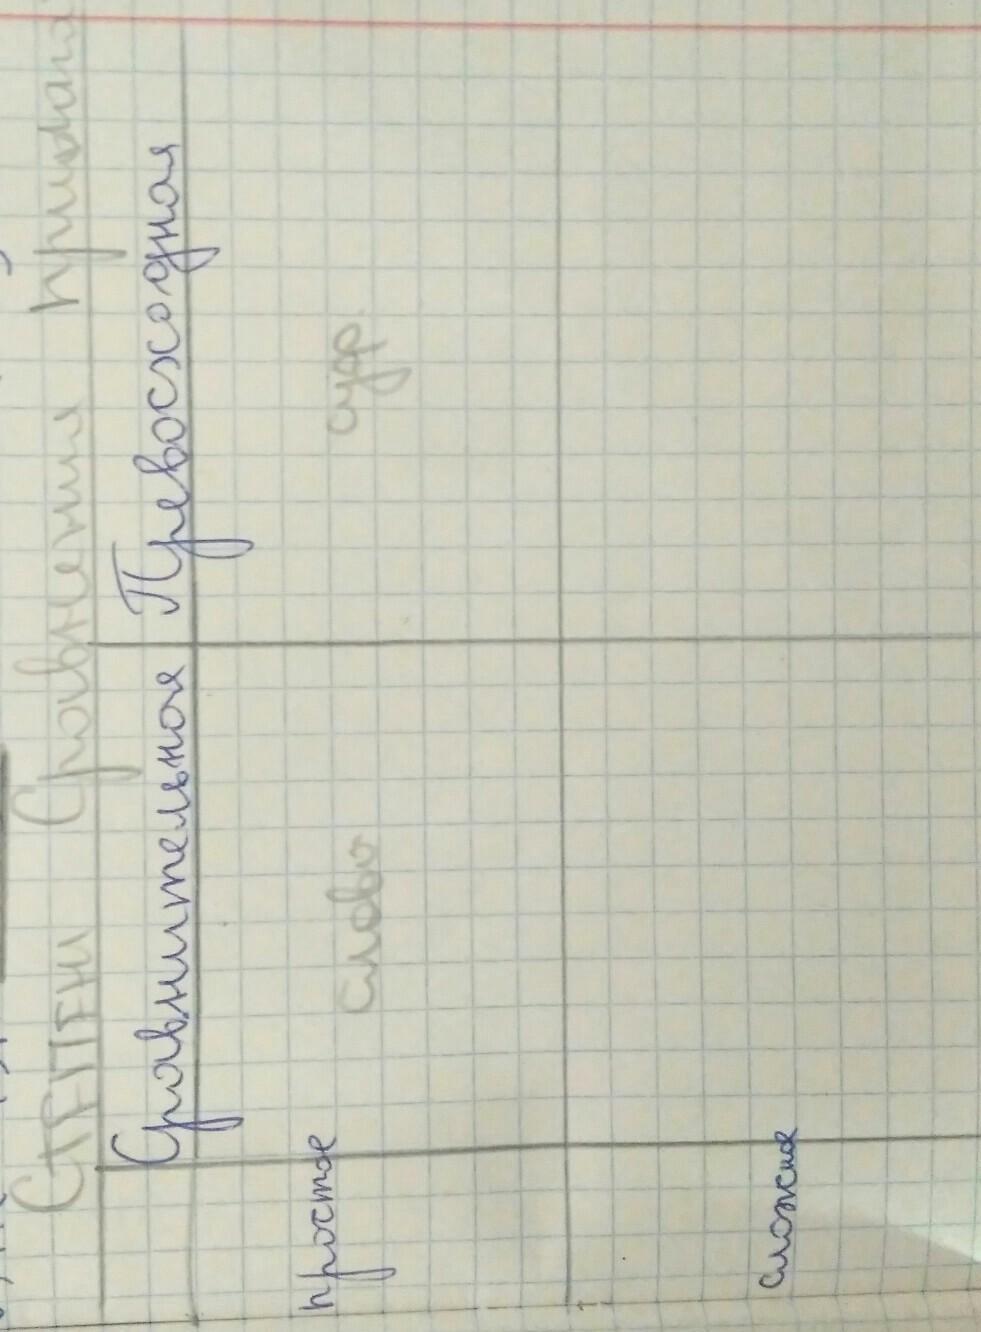 Степени Сравнения прилага
Сравнительная Превосходная
простое слово суф.
сложное